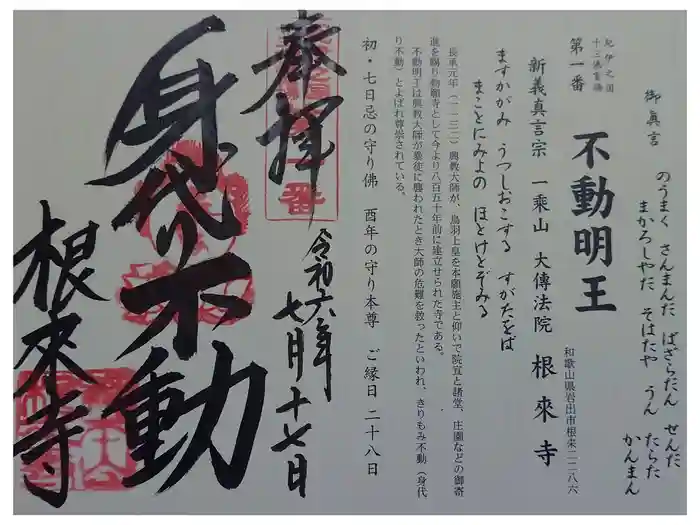 御真言
のうまく さんまんだ ばざらだん せんだ
まかろしやだ そはたや うんたらた
かんまん
紀伊之国
十三佛霊場
第一番
不動明王
和歌山県岩出市根来二二八六
新義真言宗 一乗山 大傳法院 根來寺
ますかがみ うつしおこする すがたをば
まことにみよの ほとけとぞみる
長承元年（一一三二）興教大師が、鳥羽上皇を本願施主と仰いで院宣と諸堂、庄園などの御寄
進を賜り勅願寺として今より八百五十年前に建立せられた寺である。
不動明王は興教大師が暴徒に襲われたとき大師の危難を救ったといわれ、きりもみ不動（身代
り不動）とよばれ尊崇されている。
初・七日忌の守り佛 酉年の守り本尊 ご縁日 二十八日
奉拝
令和六年
七月十七日
身代り不動
根來寺